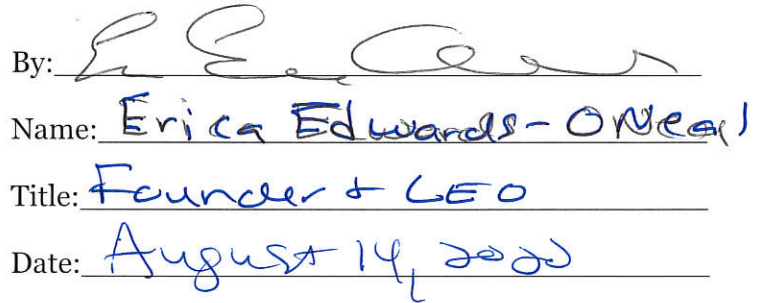 By:
Name: Erica Edwards-ONeal
Title: Founder + CEO
Date: August 14, 2020